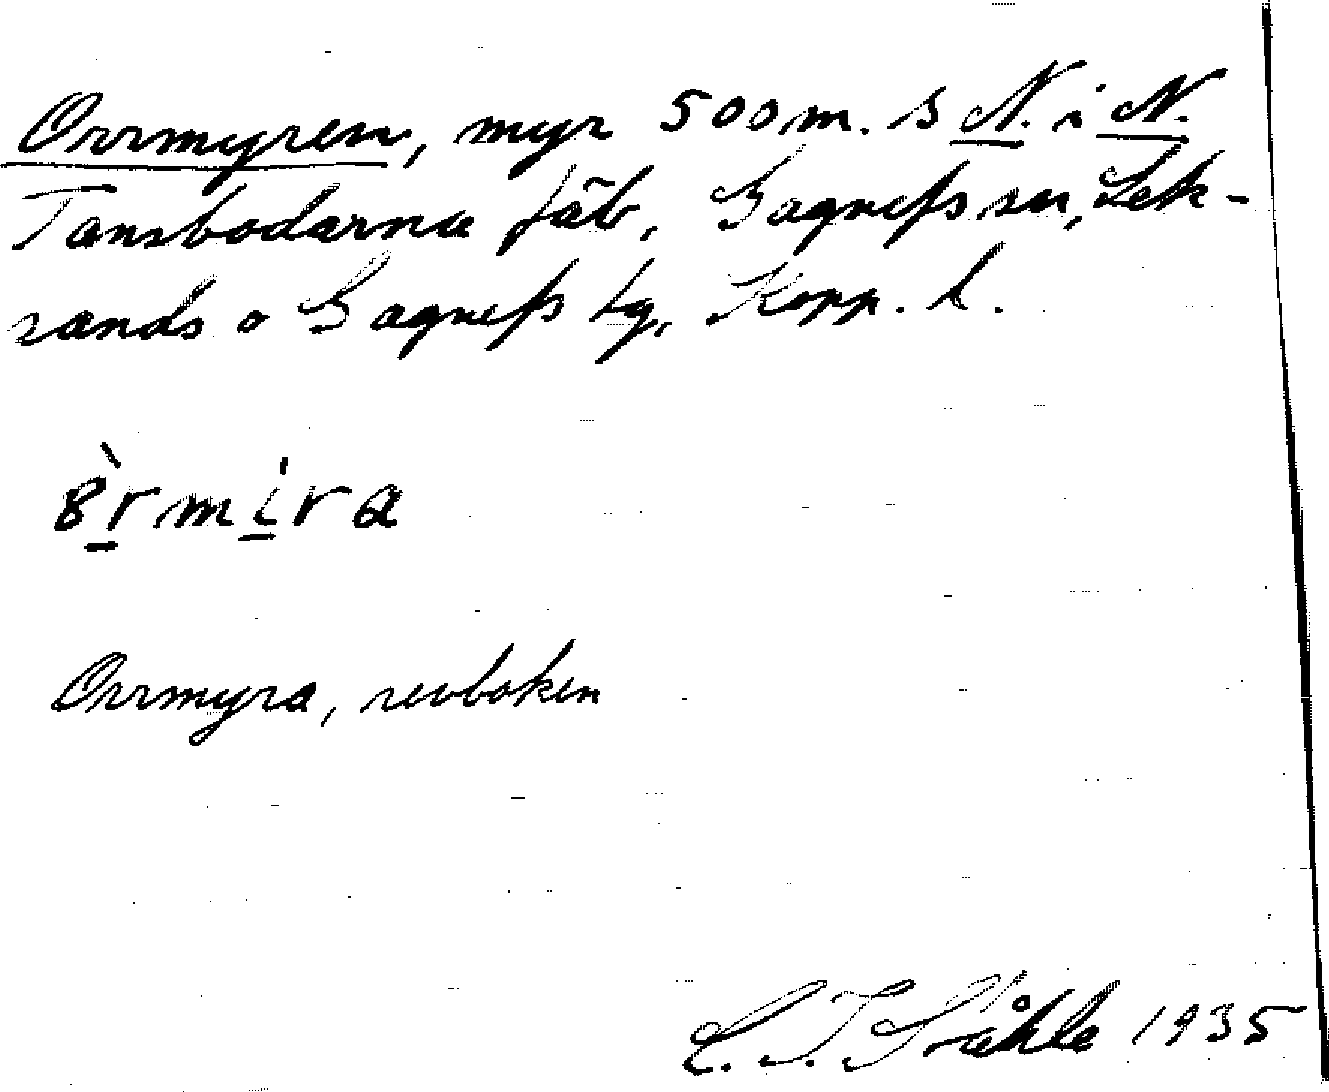 Orrmyren, myr 500 m. s N. i N.
Tansbodarna fäb, Gagnefs sn, Lek-
sands o Gagnefs tg, Kopp. l.
òrmira
Orrmyra, revboken
C. I. Ståhle 1935